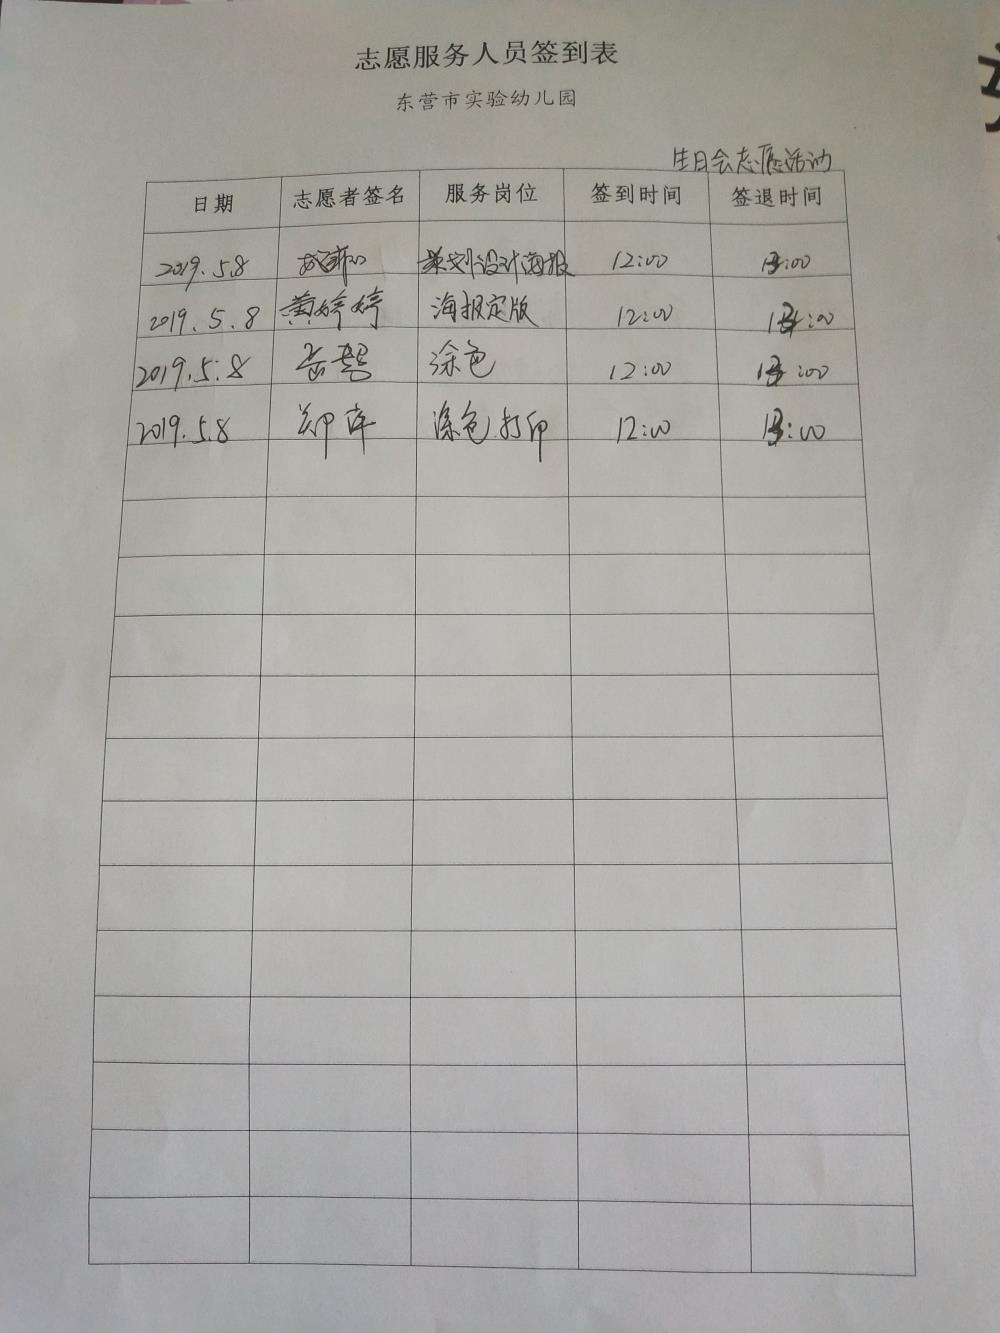 志愿服务人员签到表
东营市实验幼儿园
生日会志愿活动
日期 志愿者签名 服务岗位 签到时间 签退时间
2019.5.8 策划设计海报 12:00 :00
2019.5.8 黄婷婷 海报定版 12:00 :00
2019.5.8 涂色 12:00 :00
2019.5.8 涂色.打印 12:00 :00